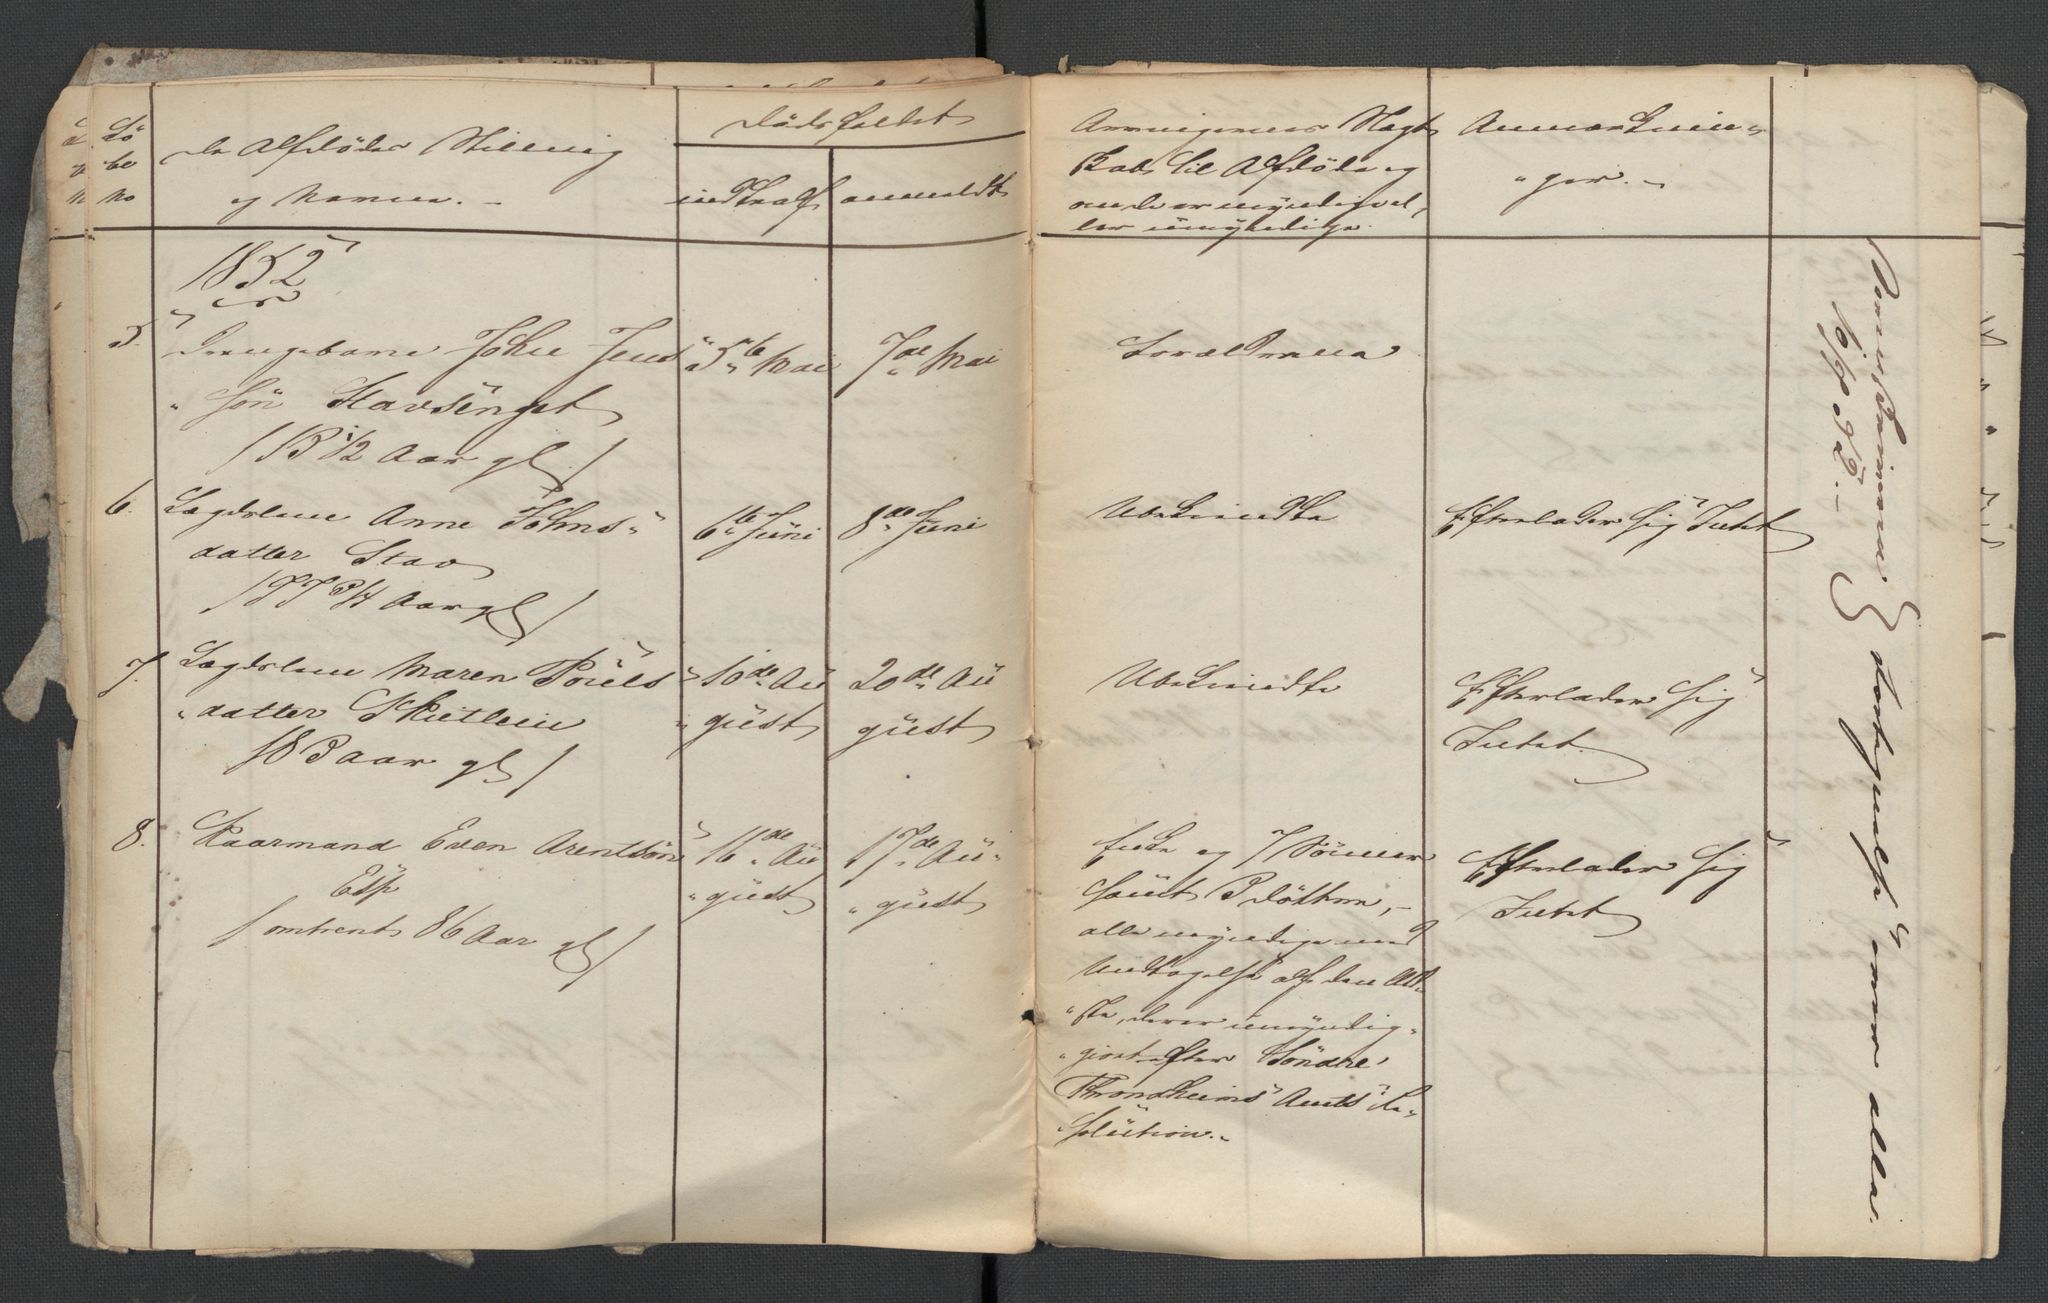 Lö
be
no
de Afdödes Stilling
og Navne. –
Dödsfaldet
indtraf
anmeldt
Arvingernes Slægt
skab til Afdöde og
om de er myndige el,
ler umyndige.
Anmærknin,
" ger. –
1852
5. Drengebarn John Jens
" sön Stavsönget
/ 13 1/2 Aar gl. /
5te Mai
7de Mai
Forældrene
6. Lægdslem Anne Johns"
datter Stav
/ 77 3/4 Aar gl /
6te Juni
8de Juni
Ubekindte
Efterlader sig Intet
7. Lægdslem Maren Pouls
" datter
/ 83 aar gl /
10de Au
" gust
20de Au
gust
Ubekindte
Efterlader sig
Intet
8. Kaarmand Even Arentsön
Esp
/ omtrent 86 Aar gl /
16de Au
" gust
17de Au"
" gust
Enke og 7 Sönner
samt 3 Döttre, –
alle myndige med
Undtagelse af den Æld
" ste, der er umyndig"
" giort efter Söndre
Throndheims Amts Re"
solution. –
Efterlader sig
Intet